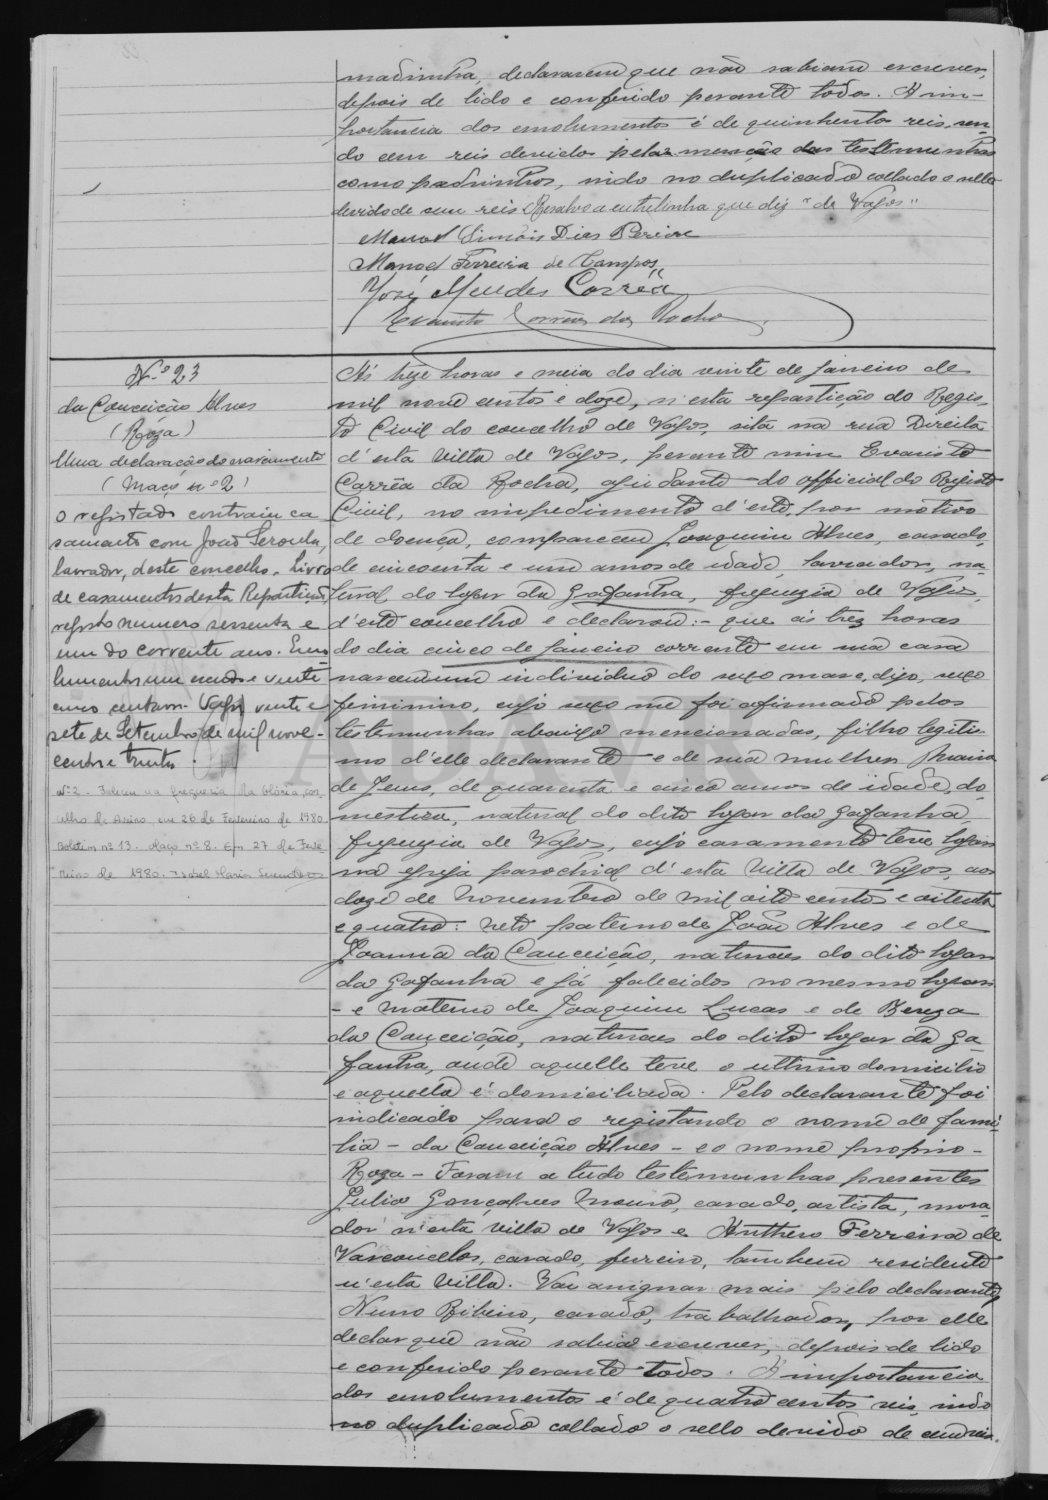 madrinha, declararem que não sabiam escrever,
depois de lido e conferido perante todos. A im-
portancia dos emolumentos é de quinhentos reis, sen-
do cem reis devidos pela menção das testemunhas
como padrinhos, indo no duplicado collado o sello
devido de cem reis. Resalvo a entrelinha que diz "de Vagos"
Manoel Simões Dias Pereira
Manoel Ferreira de Campos
José Mendes Corrêa
Evaristo Corrêa da Rocha
Nº 23
da Conceição Alves
(Roza)
Uma declaração de nascimento
(Maço nº 2)
O registado contraiu ca
samento com João
lavrador, deste concelho. Livro
de casamentos desta Repartição,
registo numero sessenta e
um do corrente ano. Emo
lumentos um escudo e vinte
cinco centavos. Vagos vinte e
sete de Setembro de mil nove-
centos e trinta.
nº 2 - Faleceu na freguesia da Glória, con
celho de Aveiro, em 26 de Fevereiro de 1980
Boletim nº 13. Maço nº 8. Em 27 de Feve
reiro de 1980. Isabel Maria
Ás treze horas e meia do dia vinte de Janeiro de
mil nove centos e doze, n'esta repartição do Regis-
to Civil do concelho de Vagos, sita na rua Direita
d'esta Villa de Vagos, perante mim Evaristo
Corrêa da Rocha, ajudante do official do Registo
Civil, no impedimento d'este, por motivo
de doença, compareceu Joaquim Alves, casado,
de cincoenta e um annos de idade, lavrador, na-
tural do logar da Gafanha, freguezia de Vagos,
d'este concelho e declarou: - que ás trez horas
do dia cinco de Janeiro corrente em sua casa
nasceu um individuo do sexo masc, digo, sexo
feminino, cujo sexo me foi afirmado pelas
testemunhas abaixo mencionadas, filho legiti-
mo d'elle declarante e de sua mulher Maria
de Jesus, de quarenta e cinco annos de idade, do-
mestica, natural do dito logar da Gafanha,
freguezia de Vagos, cujo casamento teve logar
na egreja parochial d'esta Villa de Vagos, aos
doze de Novembro de mil oito centos e oitenta
e quatro: neto paterno de João Alves e de
Joanna da Conceição, naturaes do dito logar
da Gafanha e já falecidos no mesmo logar
- e materno de Joaquim Lucas e de
da Conceição, naturaes do dito logar da Ga-
fanha, onde aquelle teve o ultimo domicilio
e aquela é domiciliada. Pelo declarante foi
indicado para o registando o nome de fami-
lia - da Conceição Alves - e o nome proprio -
Roza - Foram a tudo testemunhas presentes
Julio Gonçalves casado, artista, mora-
dor n'esta Villa de Vagos e Anthero Ferreira de
Vasconcellos, casado, ferreiro, tambem residente
n'esta Villa. Vai assignar mais pelo declarante,
Nuno Ribeiro, casado, trabalhador, por elle
declar que não sabia escrever, depois de lido
e conferido perante todos. A importancia
dos emolumentos é de quatro centos reis, indo
no duplicado collado o sello devido de cem reis.
ADAVR